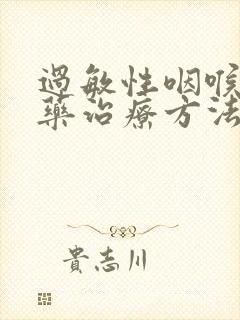 過敏性咽喉
藥治療方法
貴志川